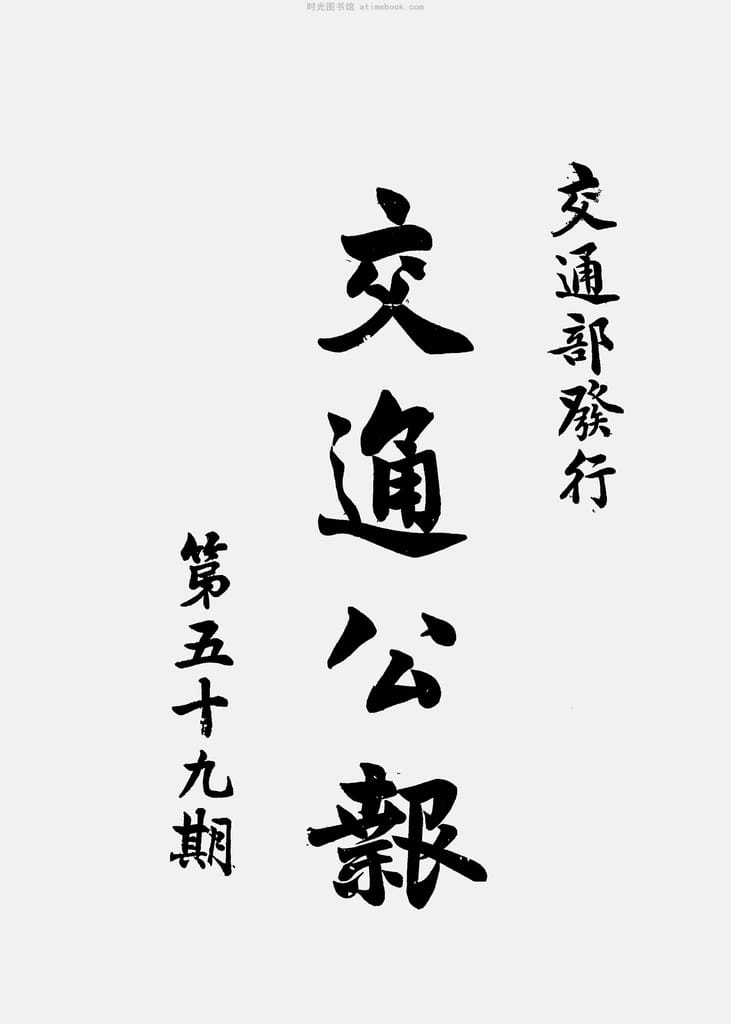 时光图书馆 atimebook.com
交通部發行
交通公報
第五十九期